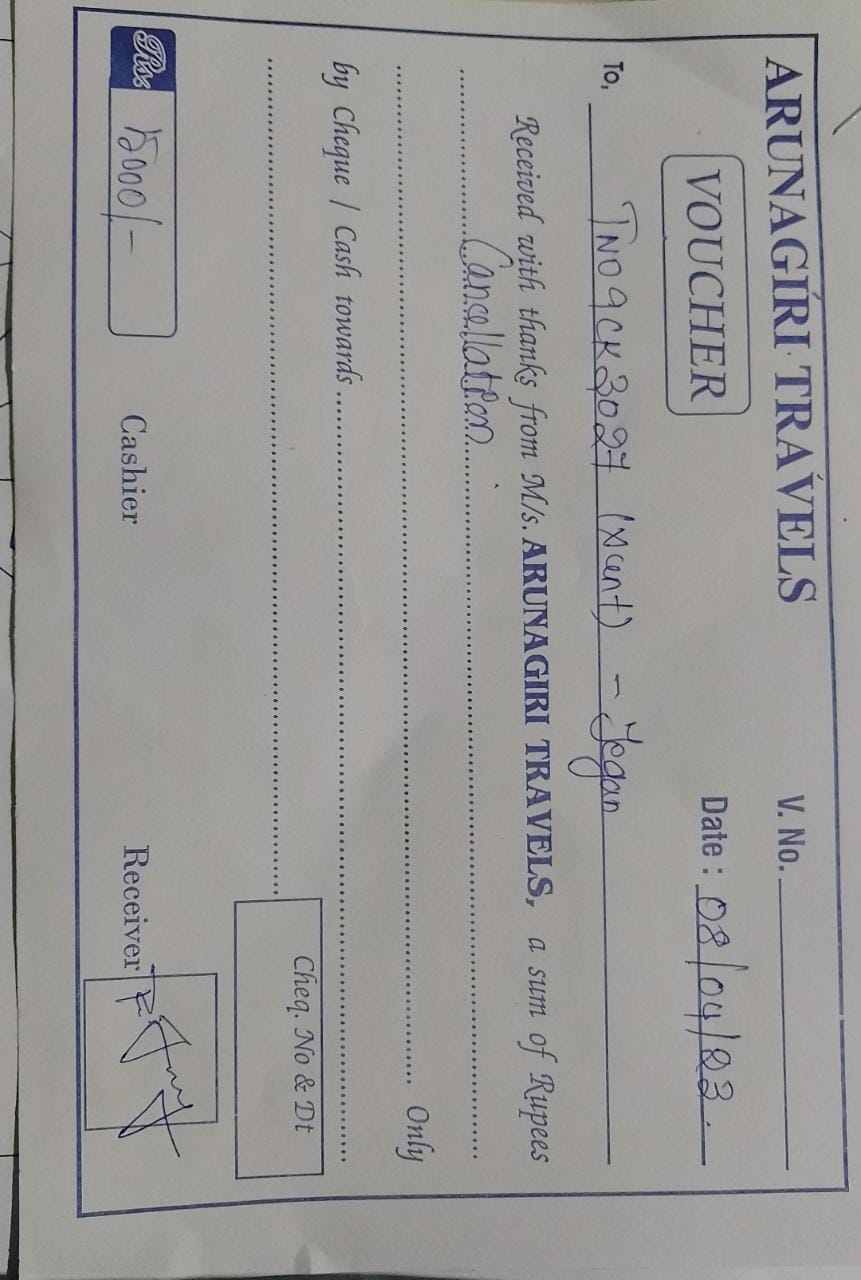 ARUNAGIRI TRAVELS
V. No.
VOUCHER
Date : 08/04/23.
To, TN09CK3027 (Xcent) - Jogan
Received with thanks from M/s. ARUNAGIRI TRAVELS, a sum of Rupees
Cancellation
Only
by Cheque / Cash towards
Cheq. No & Dt
Rs. 5000/-
Cashier
Receiver